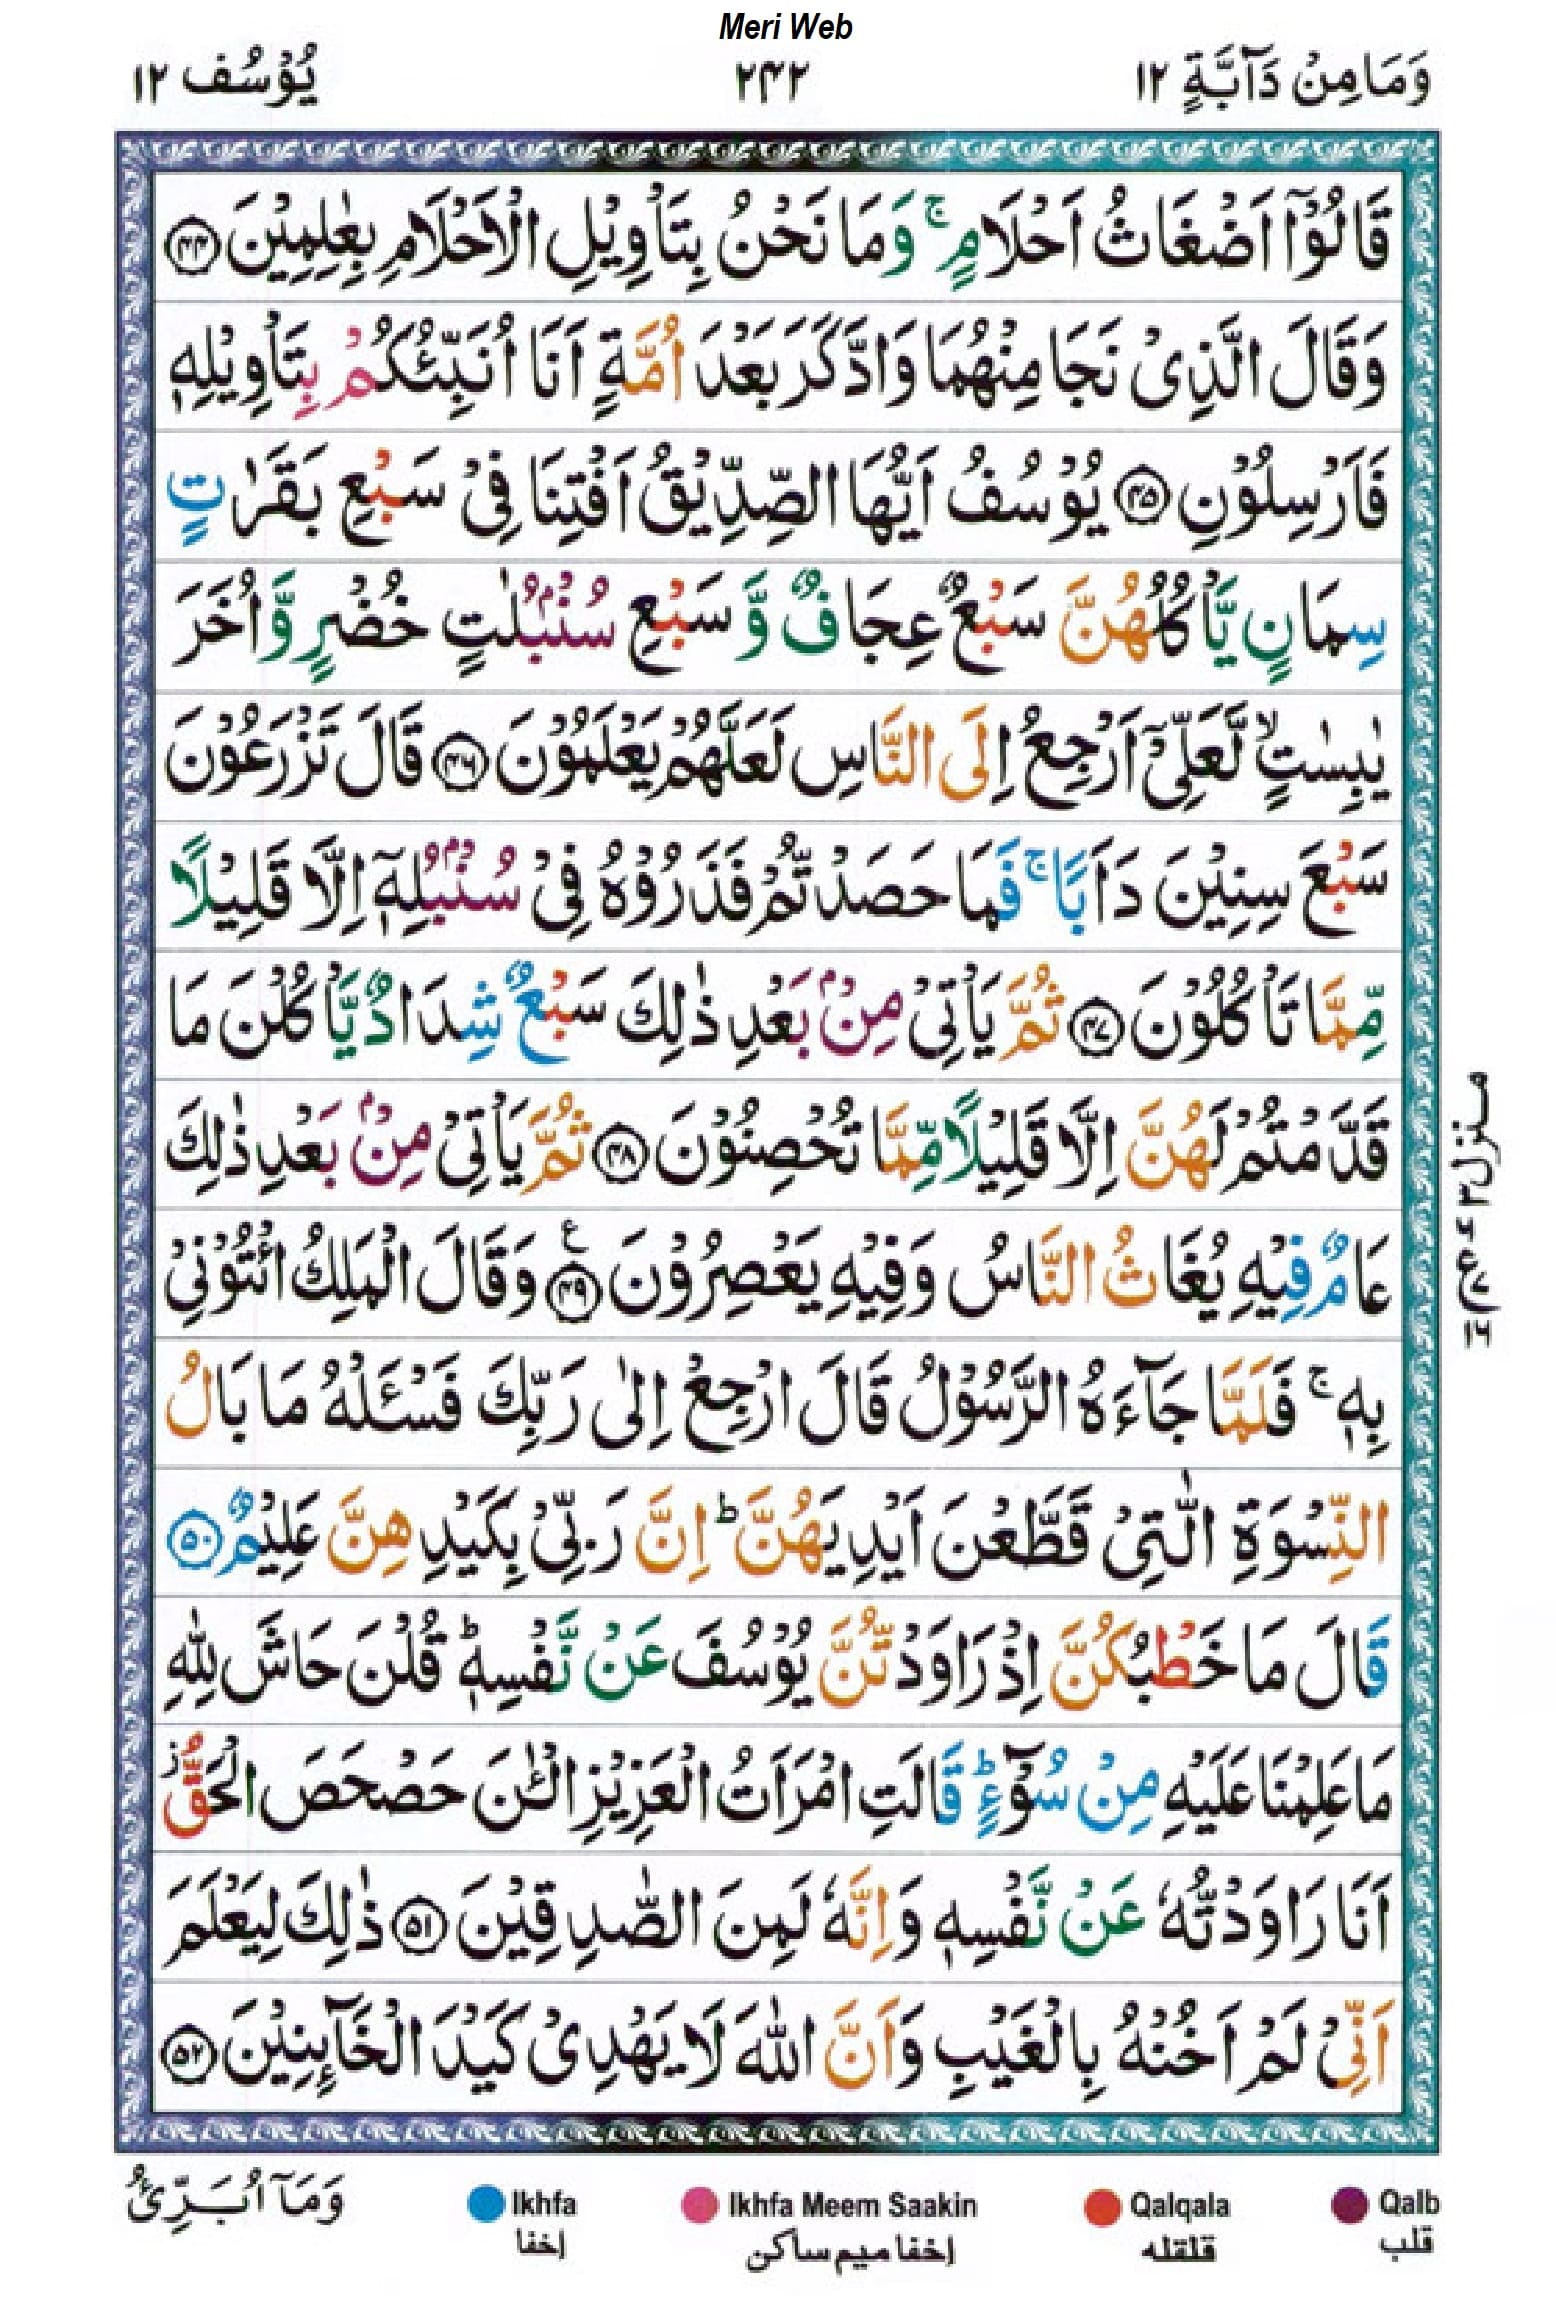 Meri Web
وَمَا مِنْ دَآبَّةٍ ۱۲ ۲۴۲ یُوْسُف ۱۲
قَالُوْۤا اَضْغَاثُ اَحْلَامٍ ۚ وَمَا نَحْنُ بِتَاْوِیْلِ الْاَحْلَامِ بِعٰلِمِیْنَ ۴۴
وَقَالَ الَّذِیْ نَجَا مِنْهُمَا وَادَّكَرَ بَعْدَ اُمَّةٍ اَنَا اُنَبِّئُكُمْ بِتَاْوِیْلِهٖ
فَاَرْسِلُوْنِ ۴۵ یُوْسُفُ اَیُّهَا الصِّدِّیْقُ اَفْتِنَا فِیْ سَبْعِ بَقَرٰتٍ
سِمَانٍ یَّاْكُلُهُنَّ سَبْعٌ عِجَافٌ وَّ سَبْعِ سُنْۢبُلٰتٍ خُضْرٍ وَّ اُخَرَ
یٰبِسٰتٍ ۙ لَّعَلِّیْۤ اَرْجِعُ اِلَی النَّاسِ لَعَلَّهُمْ یَعْلَمُوْنَ ۴۶ قَالَ تَزْرَعُوْنَ
سَبْعَ سِنِیْنَ دَاَبًا ۚ فَمَا حَصَدْتُّمْ فَذَرُوْهُ فِیْ سُنْۢبُلِهٖۤ اِلَّا قَلِیْلًا
مِّمَّا تَاْكُلُوْنَ ۴۷ ثُمَّ یَاْتِیْ مِنْۢ بَعْدِ ذٰلِكَ سَبْعٌ شِدَادٌ یَّاْكُلْنَ مَا
قَدَّمْتُمْ لَهُنَّ اِلَّا قَلِیْلًا مِّمَّا تُحْصِنُوْنَ ۴۸ ثُمَّ یَاْتِیْ مِنْۢ بَعْدِ ذٰلِكَ
عَامٌ فِیْهِ یُغَاثُ النَّاسُ وَفِیْهِ یَعْصِرُوْنَ ۴۹ ع وَقَالَ الْمَلِكُ ائْتُوْنِیْ
بِهٖ ۚ فَلَمَّا جَآءَهُ الرَّسُوْلُ قَالَ ارْجِعْ اِلٰی رَبِّكَ فَسْـَٔلْهُ مَا بَالُ
النِّسْوَةِ الّٰتِیْ قَطَّعْنَ اَیْدِیَهُنَّ ؕ اِنَّ رَبِّیْ بِكَیْدِهِنَّ عَلِیْمٌ ۵۰
قَالَ مَا خَطْبُكُنَّ اِذْ رَاوَدْتُّنَّ یُوْسُفَ عَنْ نَّفْسِهٖ ؕ قُلْنَ حَاشَ لِلّٰهِ
مَا عَلِمْنَا عَلَیْهِ مِنْ سُوْٓءٍ ؕ قَالَتِ امْرَاَتُ الْعَزِیْزِ الْـٰٔنَ حَصْحَصَ الْحَقُّ ؗ
اَنَا رَاوَدْتُّهٗ عَنْ نَّفْسِهٖ وَاِنَّهٗ لَمِنَ الصّٰدِقِیْنَ ۵۱ ذٰلِكَ لِیَعْلَمَ
اَنِّیْ لَمْ اَخُنْهُ بِالْغَیْبِ وَاَنَّ اللّٰهَ لَا یَهْدِیْ كَیْدَ الْخَآئِنِیْنَ ۵۲
منزل۳
وَمَاۤ اُبَرِّئُ
Ikhfa
اخفا
Ikhfa Meem Saakin
اخفا میم ساکن
Qalqala
قلقله
Qalb
قلب